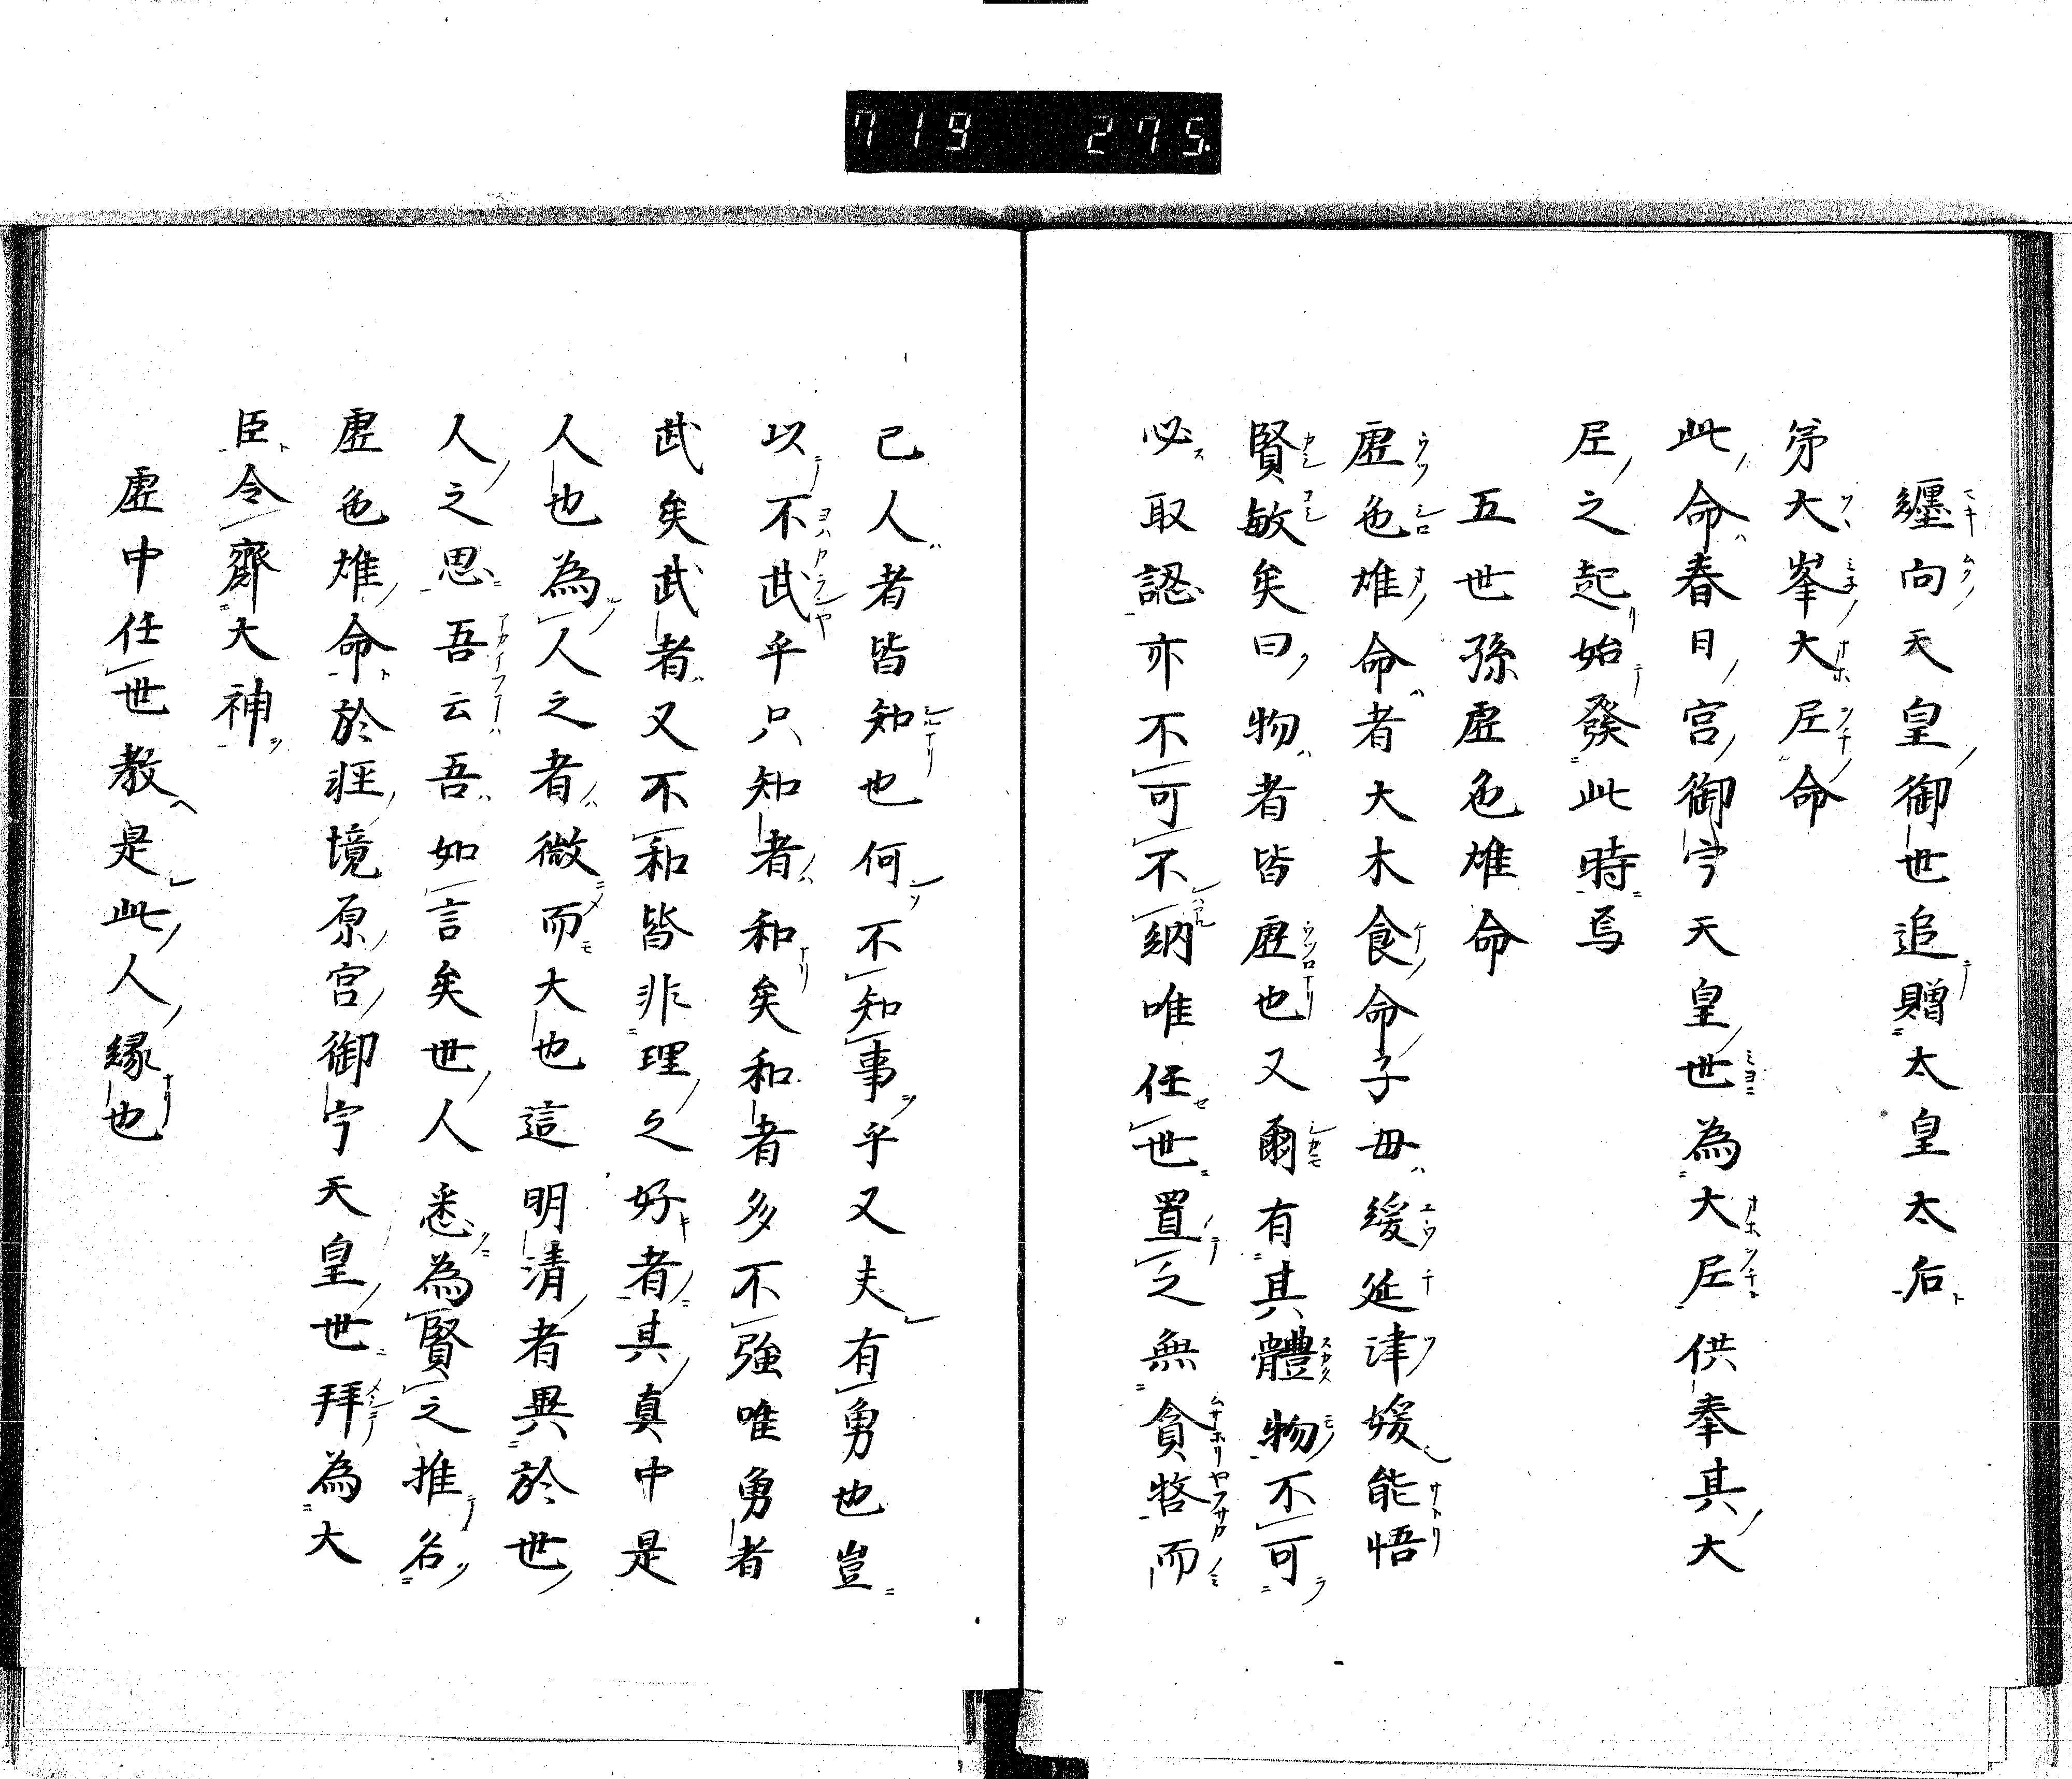 719 275.
纏向天皇御世追贈太皇太后
第大峯大尼命
此命春日宮御宇天皇世為大尼供奉其大
尼之起始發此時焉
五世孫虚色雄命
虚色雄命者大木食命子毋緩延津媛能悟
賢敏矣曰物者皆虚也又爾有其體物不可
必取認亦不可不納唯任世置之無貪悋而
已人者皆知也何不知事乎又夫有勇也豈
以不武乎只知者和矣和者多不強唯勇者
武矣武者又不和皆非理之好者其真中是
人也為人之者微而大也這明清者異於世
人之思吾云吾如言矣世人悉為賢之推名
虚色雄命於軽境原宮御宇天皇世拜為大
臣令齋大神
虚中任世教是此人縁也